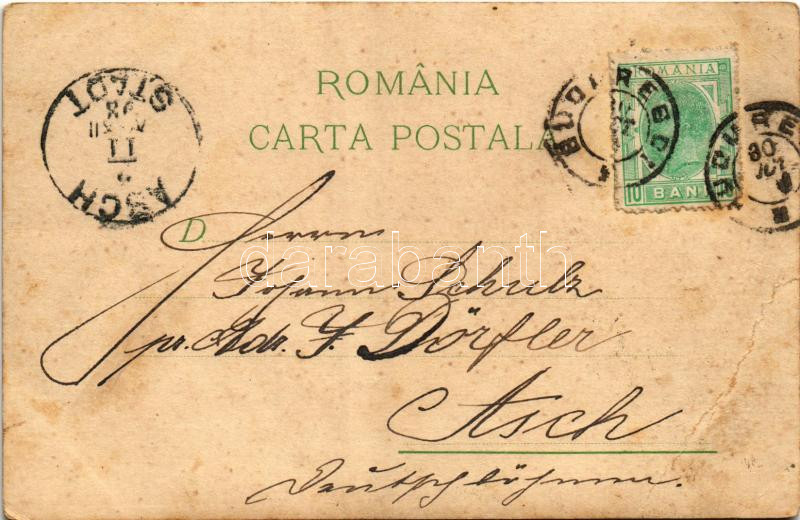 ROMÂNIA
CARTA POSTALA
ROMANIA
10 BANI
ASCH
STADT
11
98
30
D. Herrn
Johann Schulz
pr. Adr. F. Dörfler
Asch
Deutschböhmen.
darabanth